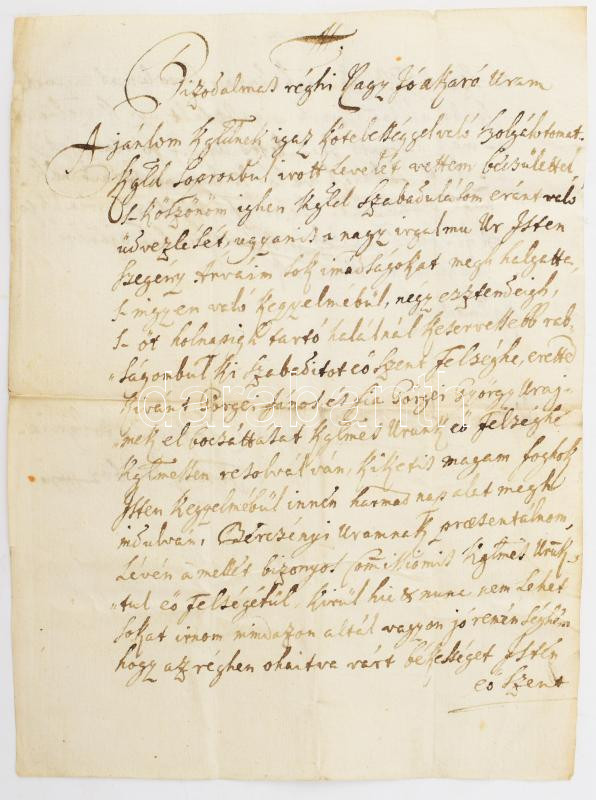 Bizodalmas réghi Nagy Jóakaró Uram
Ajánlom Kgldnek igaz kötelességgel való szolgálatomat.
Kgld Sopronbul irott levelét vettem becsülettel
s köszönöm ighen Kgld szabadulásom eránt való
üdvezlesét, ugyanis a nagy irgalmu Ur Isten
szegény Arvaim sok imádságokat megh halgatta,
s ingyen való kegyelmébül, négy esztendeigh,
s öt holnapigh tartó halálnál keservessebb rab-
ságombul ki szabaditot eö szent Felséghe, erettem
kivánt Görgei János és fia Görgei György Uraj-
mek el bocsáttasat Kglmes Urunk eö Felséghe
Kglmessen resolválván, kiket is magam foghok
Isten kegyelmébül innen harmad nap alat megh
indulván, Bercsényi Uramnak præsentálnom,
Lévén a mellet bizonyos Commissiomis Kglmes Urunk-
tul eö Felségétül. Kirül hic & nunc nem lehet
sokat irnom mindazon által vagyon jó reménséghem
hogy azréghen ohaitva várt békességet Isten
eö szent